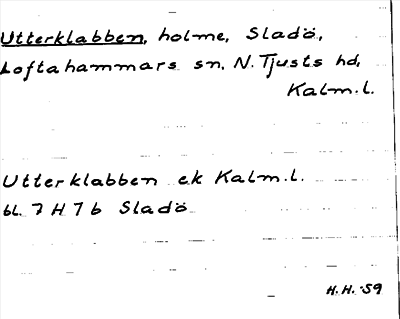 Utterklabben, holme, Sladö,
Loftahammars sn, N. Tjusts hd,
Kalm.l.
Utterklabben ek Kalm.l.
bl. 7 H 7 b Sladö
H.H. 59